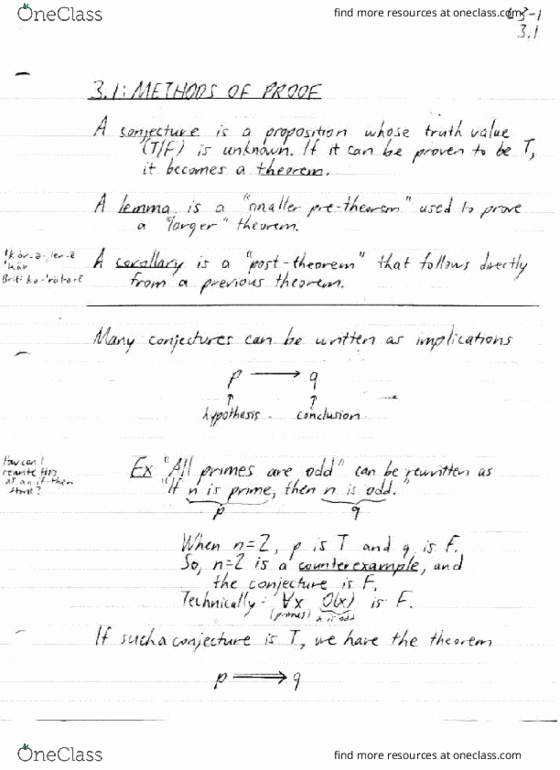 OneClass
find more resources at oneclass.com
3.1
3.1: METHODS OF PROOF
A conjecture is a proposition whose truth value
(T/F) is unknown. If it can be proven to be T,
it becomes a theorem.
A lemma is a "smaller pre-theorem" used to prove
a "larger" theorem.
A corollary is a "post-theorem" that follows directly
from a previous theorem.
Many conjectures can be written as implications
p → q
↑ ↑
hypothesis conclusion
How can I
rewrite this
as an if-then
stmt?
Ex "All primes are odd" can be rewritten as
"If n is prime, then n is odd."
p q
When n=2, p is T and q is F.
So, n=2 is a counterexample, and
the conjecture is F.
Technically: ∀x O(x) is F.
(primes) x is odd
If such a conjecture is T, we have the theorem
p ⟹ q
OneClass
find more resources at oneclass.com